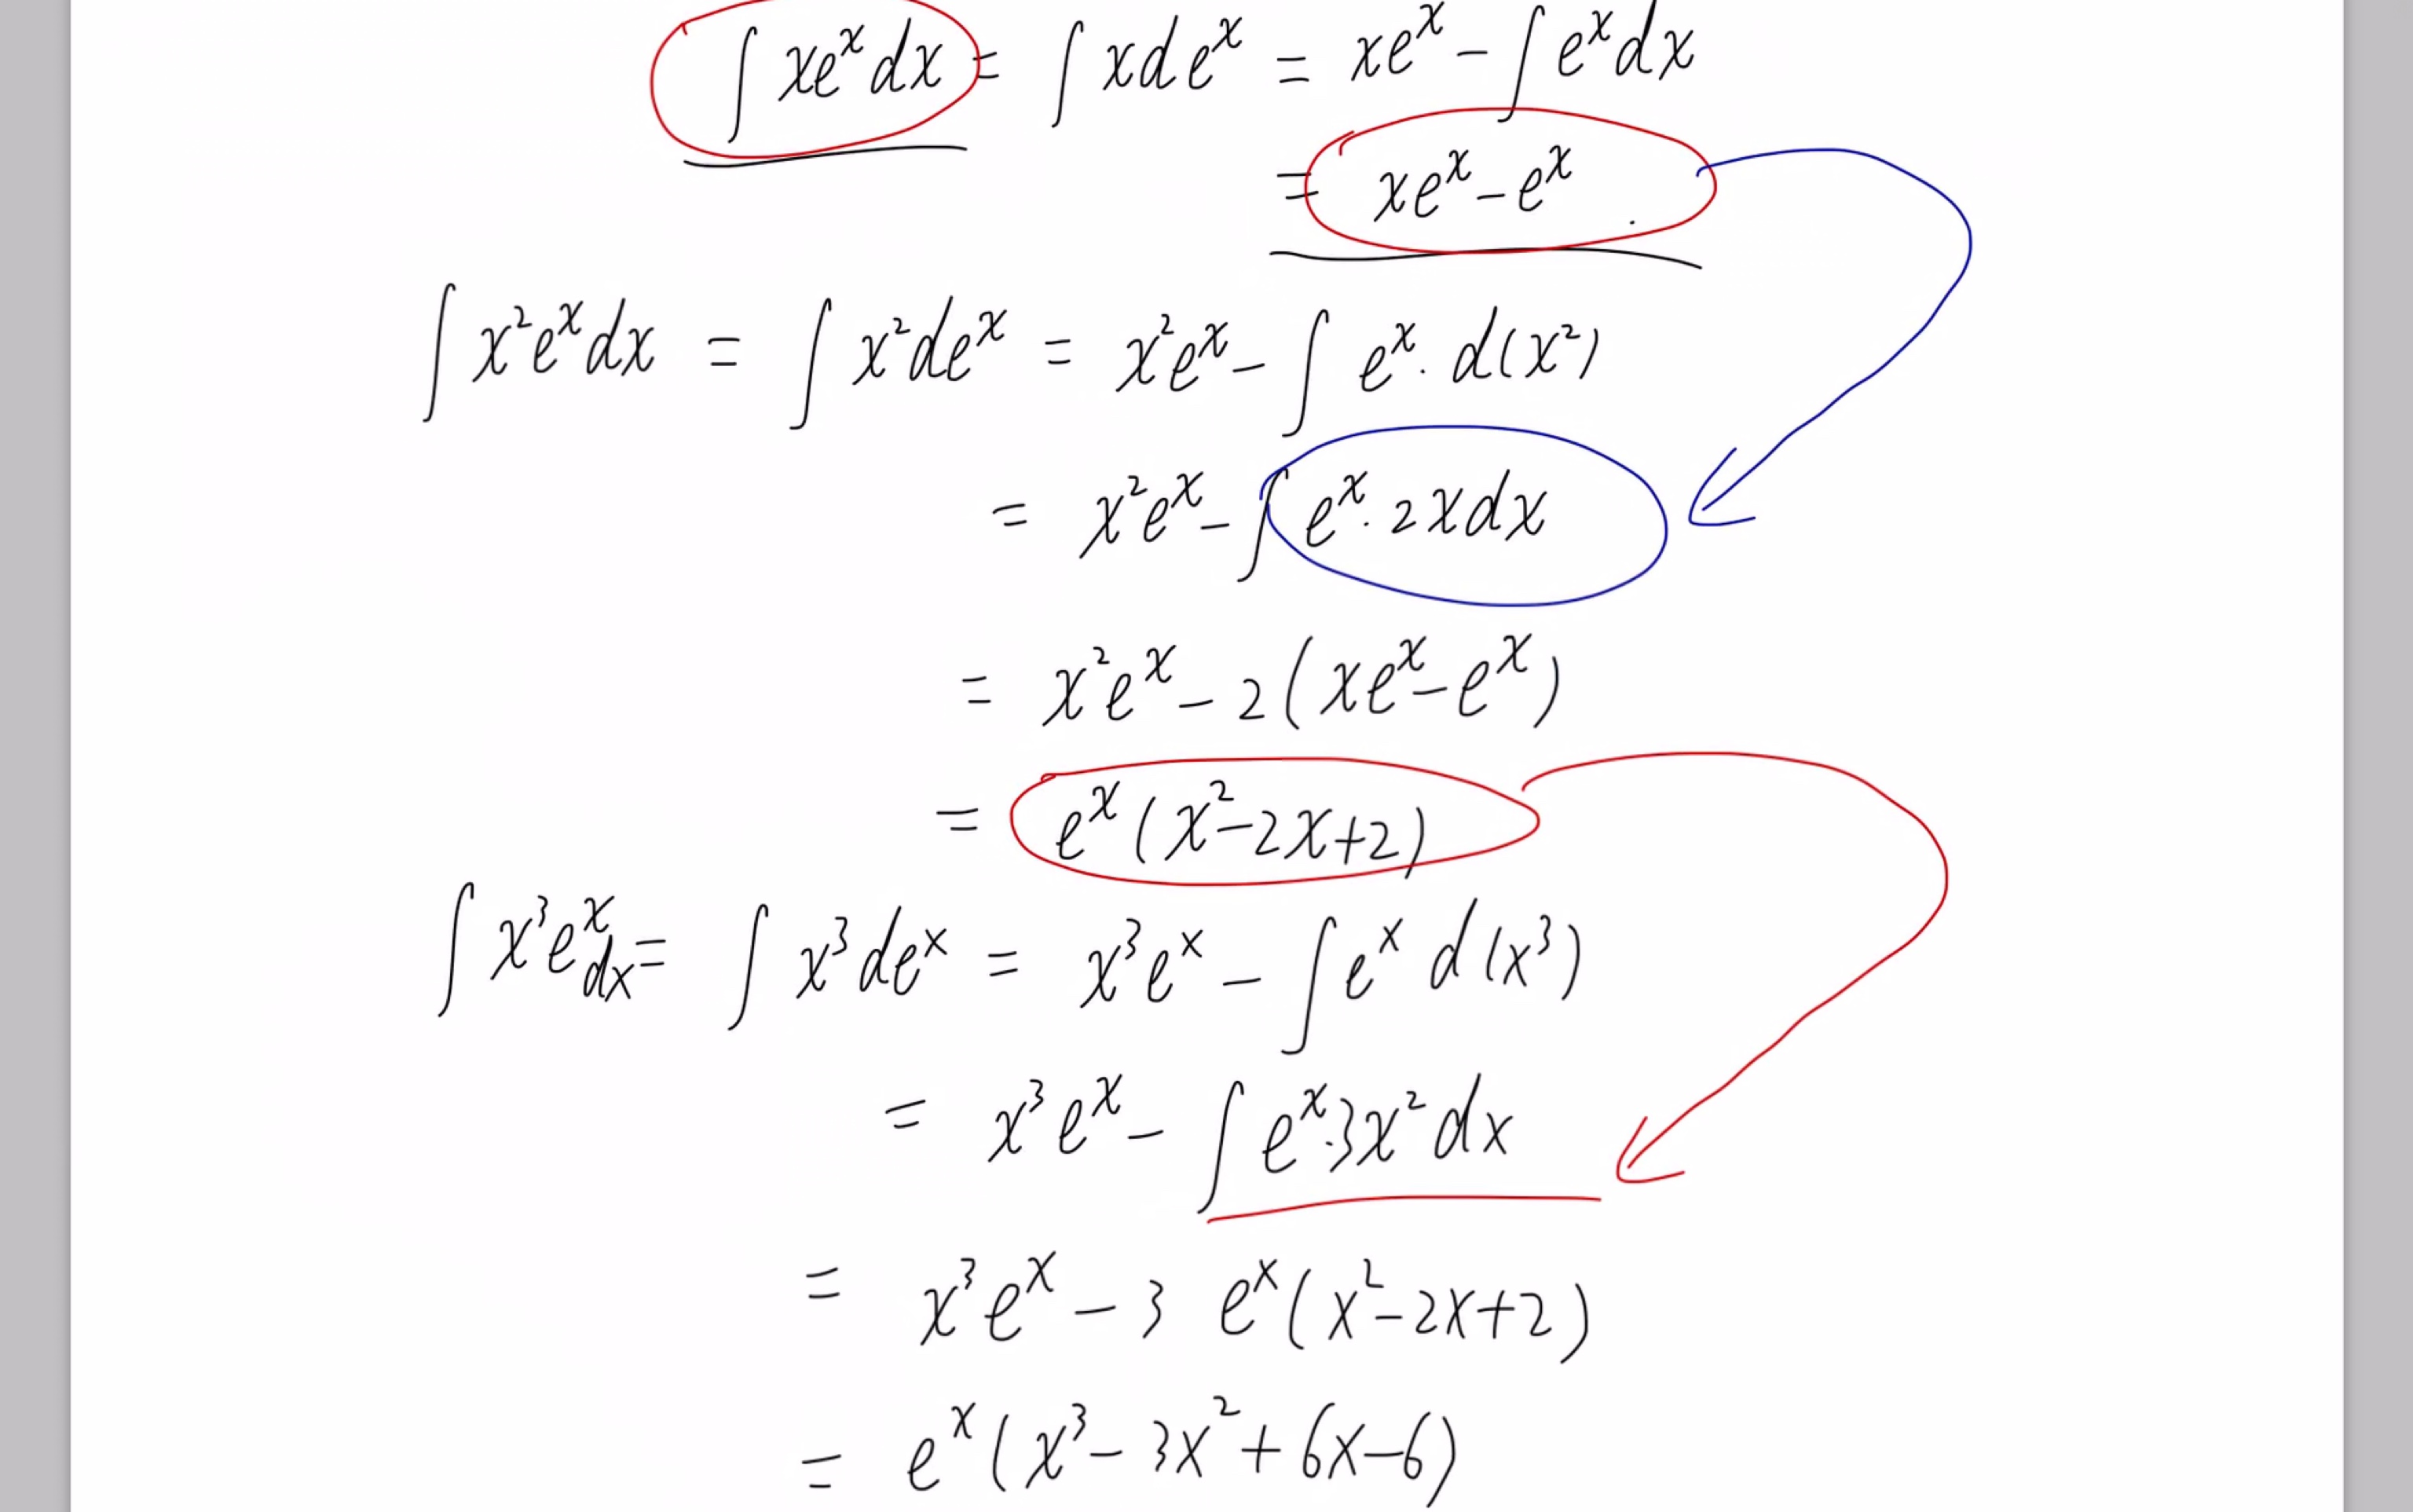 ∫ xeˣdx = ∫ xdeˣ = xeˣ - ∫ eˣdx
= xeˣ - eˣ .
∫ x²eˣdx = ∫ x²deˣ = x²eˣ - ∫ eˣ · d(x²)
= x²eˣ - ∫ eˣ · 2xdx
= x²eˣ - 2(xeˣ - eˣ)
= eˣ(x² - 2x + 2)
∫ x³eˣdx = ∫ x³deˣ = x³eˣ - ∫ eˣ d(x³)
= x³eˣ - ∫ eˣ · 3x²dx
= x³eˣ - 3 eˣ(x² - 2x + 2)
= eˣ(x³ - 3x² + 6x - 6)